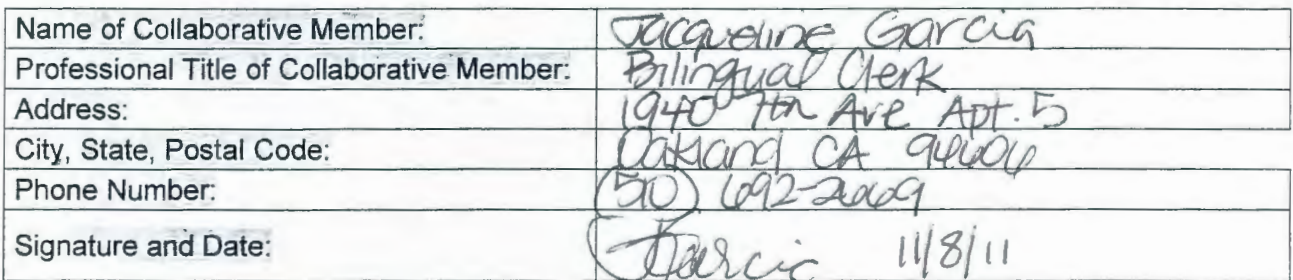 Name of Collaborative Member: Jacqueline Garcia
Professional Title of Collaborative Member: Bilingual Clerk
Address: 1940 7th Ave Apt. 5
City, State, Postal Code: Oakland CA 94606
Phone Number: (510) 692-2669
Signature and Date: JGarcia 11/8/11